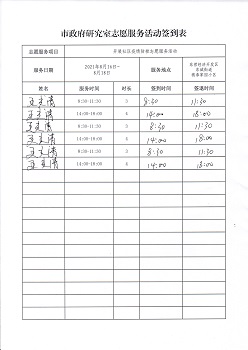 市政府研究室志愿服务活动签到表
志愿服务项目 开展社区疫情防控志愿服务活动
服务日期 2021年6月16日- 6月18日 服务地点
姓名 服务时间 时长 签到时间 签退时间
8:30-11:30 3 8:30 11:30
14:00-18:00 4 14:00 18:00
8:30-11:30 3 8:30 11:30
14:00-18:00 4 14:00 18:00
8:30-11:30 3 8:30 11:30
14:00-18:00 4 14:00 18:00